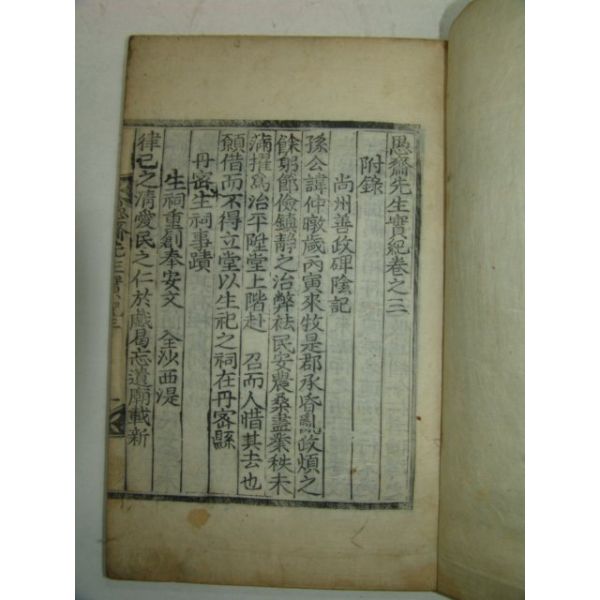 愚齋先生實紀卷之三
附錄
尙州善政碑陰記
孫公諱仲暾歲丙寅來牧是郡承昏亂政煩之
餘躬節儉鎭靜之治弊祛民安農桑盡業秩未
滿擢爲治平陞堂上階赴 召而人惜其去也
願借而不得立堂以生祀之祠在丹密縣
丹密生祠事蹟
生祠重創奉安文 全沙西湜
律己之淸愛民之仁於戲曷忘遺廟載新